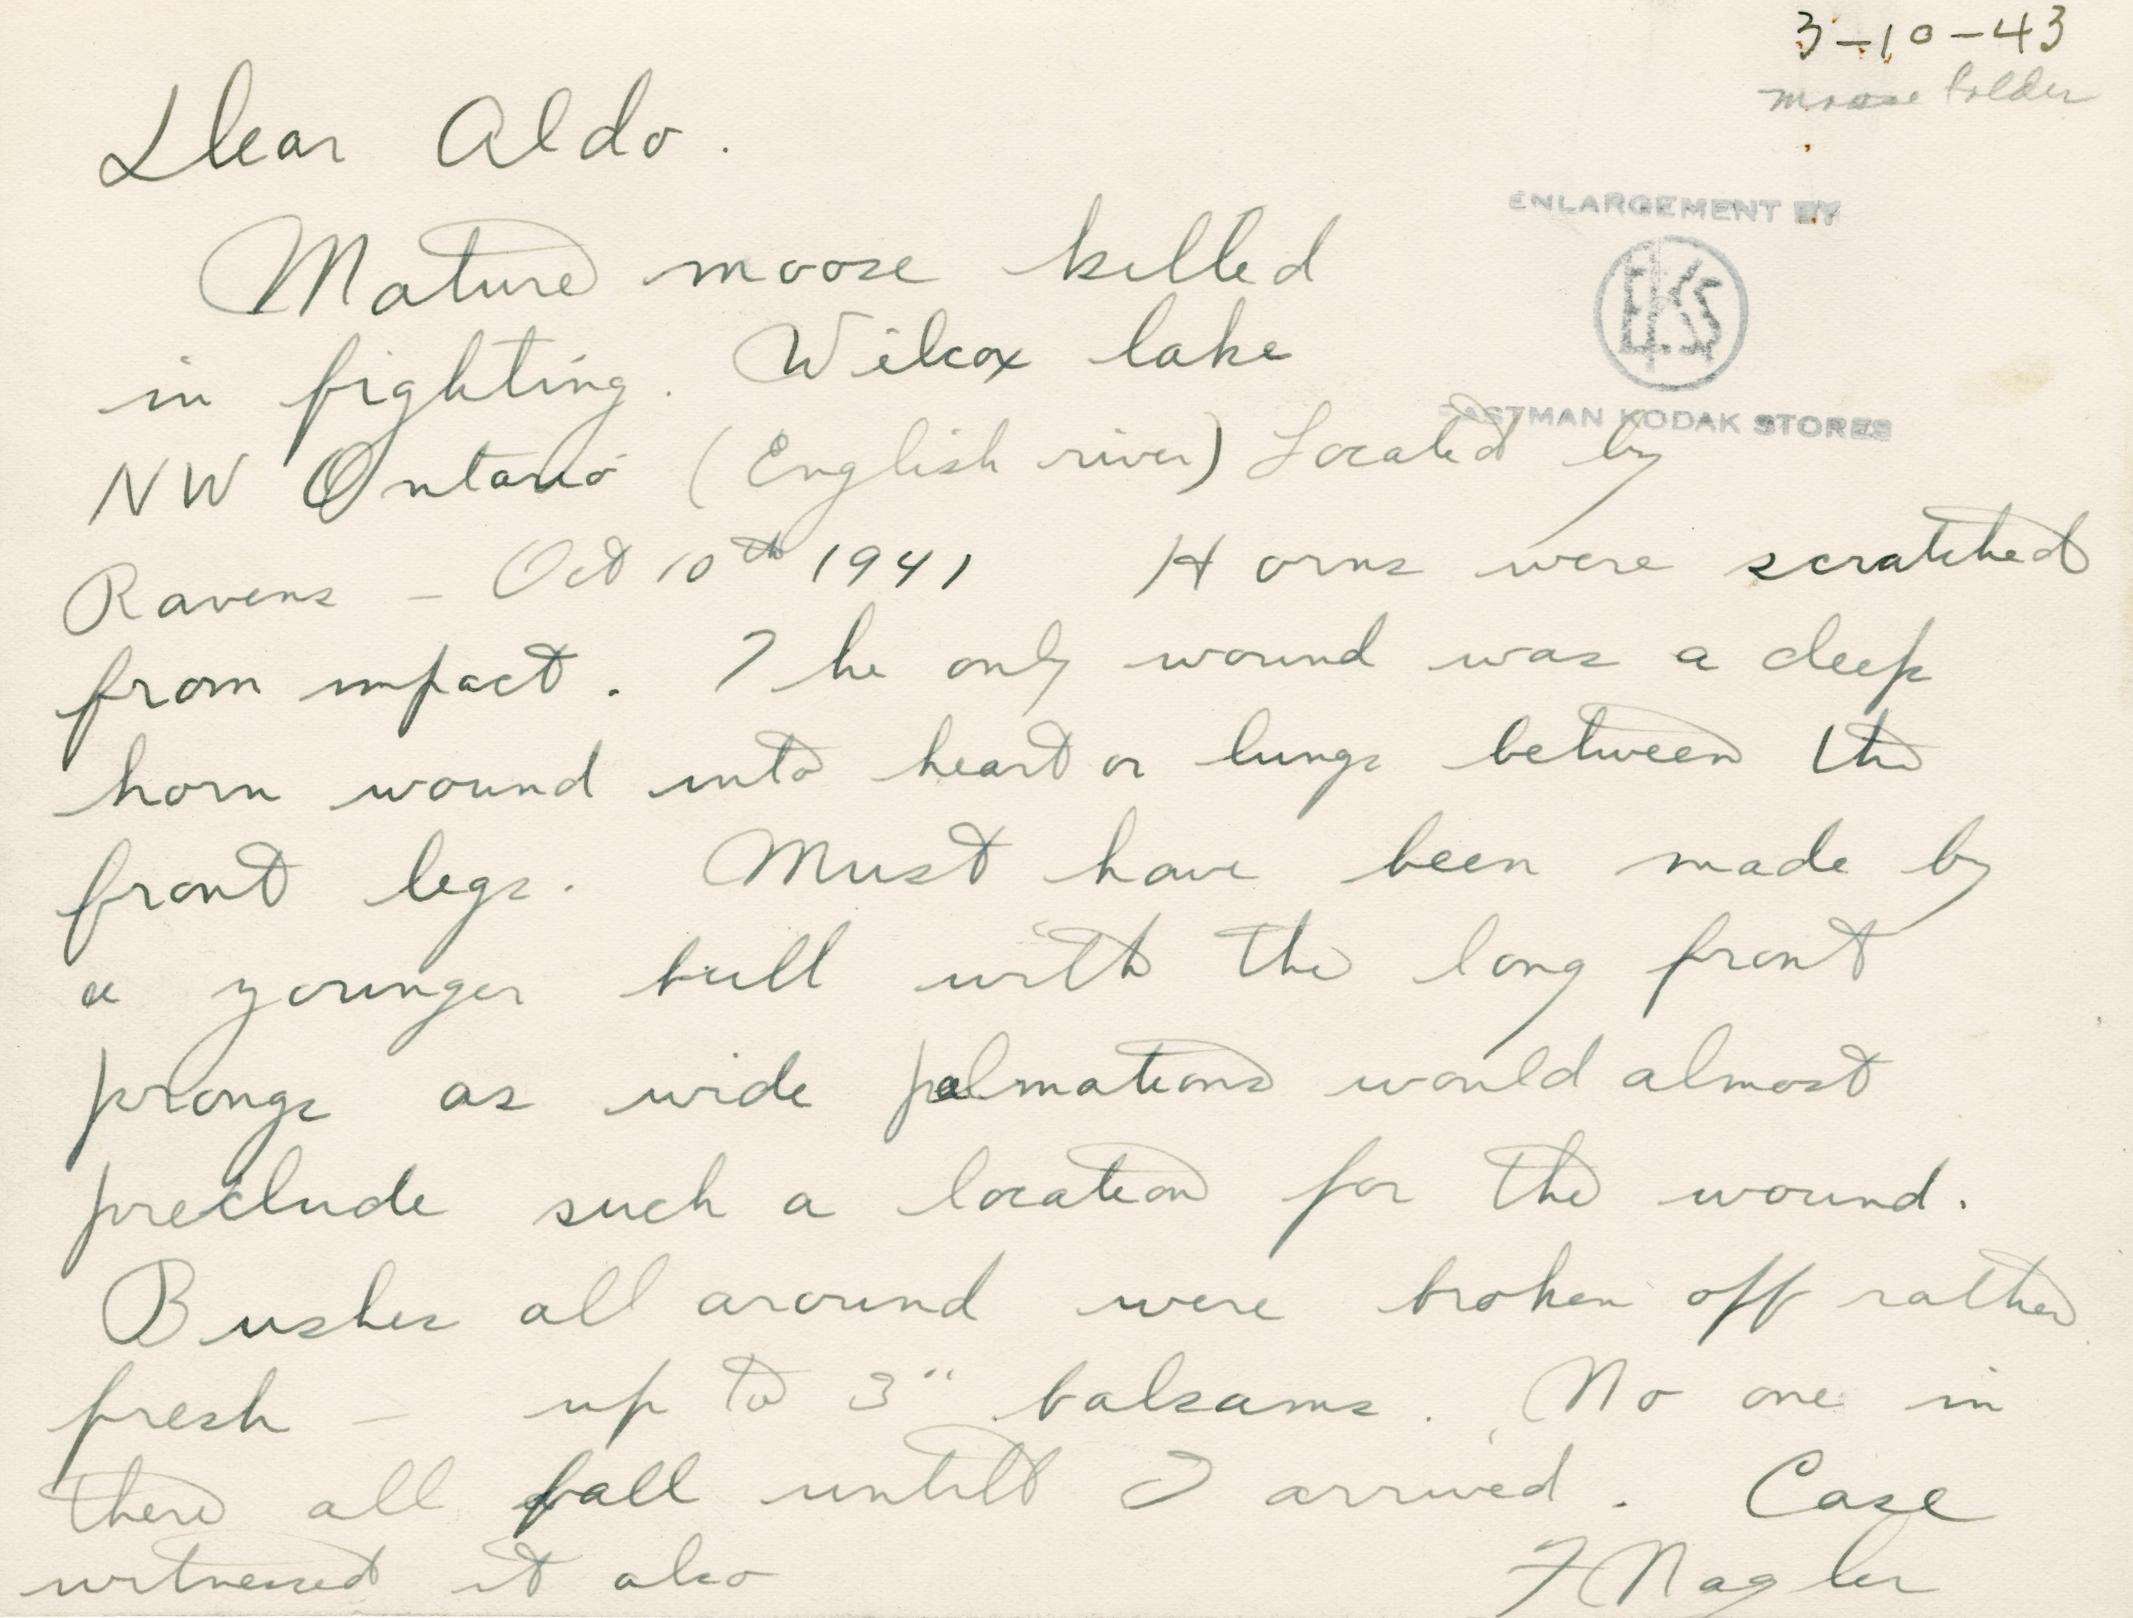 3-10-43
moose folder
Dear Aldo.
ENLARGEMENT BY
EKS
EASTMAN KODAK STORES
Mature moose killed
in fighting. Wilcox lake
NW Ontario (English river) Located by
Ravens - Oct 10th 1941 Horns were scratched
from impact. The only wound was a deep
horn wound into heart or lungs between the
front legs. Must have been made by
a younger bull with the long front
prongs as wide palmations would almost
preclude such a location for the wound.
Bushes all around were broken off rather
fresh - up to 3" balsams. No one in
there all fall untill I arrived. Case
witnessed it also
F Nagler